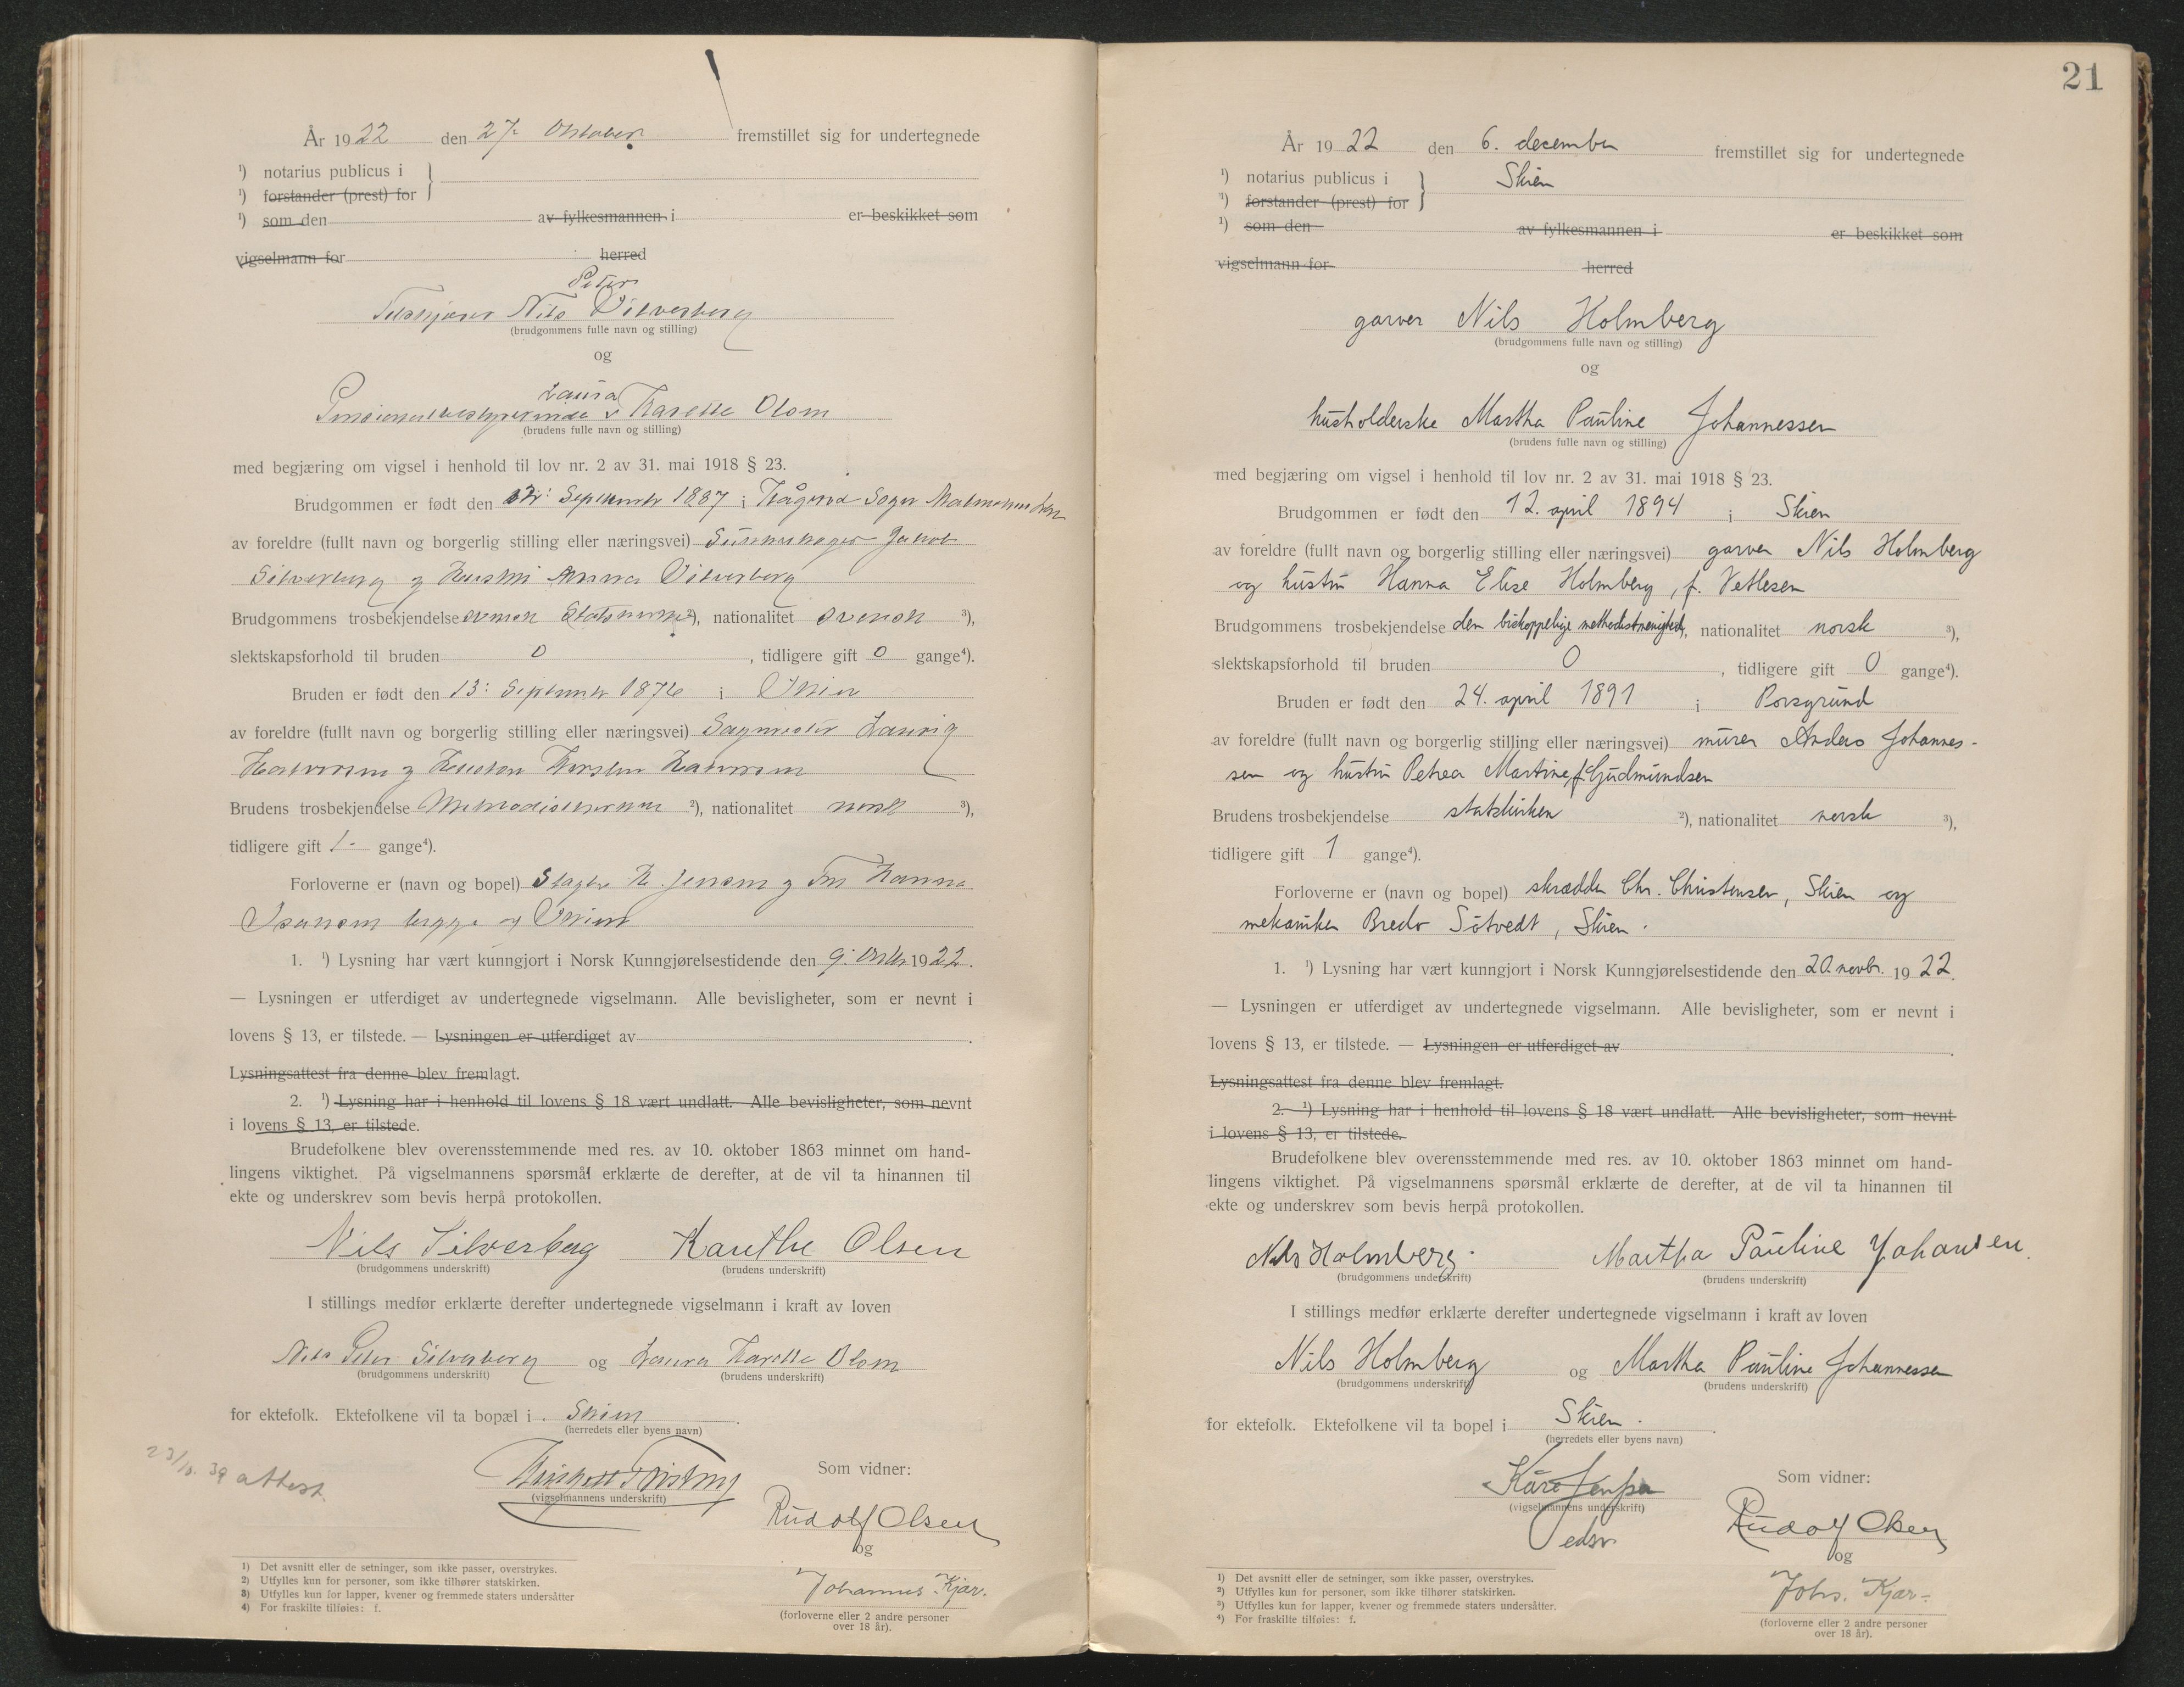 År 1922 den 27 Oktober fremstillet sig for undertegnede
¹) notarius publicus i
¹) forstander (prest) for
¹) som den av fylkesmannen i er beskikket som
vigselmann for herred
Peter
Nils Silverberg
(brudgommens fulle navn og stilling)
og
Laura
Karethe Olsen
(brudens fulle navn og stilling)
med begjæring om vigsel i henhold til lov nr. 2 av 31. mai 1918 § 23.
Brudgommen er født den September 1887 i Sogn
av foreldre (fullt navn og borgerlig stilling eller næringsvei) Jakob
Silverberg og Hustru Anna Silverberg
Brudgommens trosbekjendelse svensk Statskirke ²), nationalitet svensk ³),
slektskapsforhold til bruden 0 , tidligere gift 0 gange⁴).
Bruden er født den 13: September 1876 i Skien
av foreldre (fullt navn og borgerlig stilling eller næringsvei) Sagmester Laurig
Halvorsen og Hustru Halvorsen
Brudens trosbekjendelse Methodistkirken ²), nationalitet norsk ³),
tidligere gift 1 - gange⁴).
Forloverne er (navn og bopel) H. Jensen og Fru Hanna
begge av Skien
1. ¹) Lysning har vært kunngjort i Norsk Kunngjørelsestidende den 9. Oktbr 1922.
— Lysningen er utferdiget av undertegnede vigselmann. Alle bevisligheter, som er nevnt i
lovens § 13, er tilstede. — Lysningen er utferdiget av .
Lysningsattest fra denne blev fremlagt.
2. ¹) Lysning har i henhold til lovens § 18 vært undlatt. Alle bevisligheter, som nevnt
i lovens § 13, er tilstede.
Brudefolkene blev overensstemmende med res. av 10. oktober 1863 minnet om hand-
lingens viktighet. På vigselmannens spørsmål erklærte de derefter, at de vil ta hinannen til
ekte og underskrev som bevis herpå protokollen.
Nils Silverberg Karethe Olsen
(brudgommens underskrift) (brudens underskrift)
I stillings medfør erklærte derefter undertegnede vigselmann i kraft av loven
Nils Peter Silverberg og Laura Karethe Olsen
(brudgommens underskrift) (brudens underskrift)
for ektefolk. Ektefolkene vil ta bopæl i . Skien .
(herredets eller byens navn)
39 attest.
Som vidner:
(vigselmannens underskrift)
Rudolf Olsen
og
Johannes Kjær.
(forloverne eller 2 andre personer
over 18 år).
1) Det avsnitt eller de setninger, som ikke passer, overstrykes.
2) Utfylles kun for personer, som ikke tilhører statskirken.
3) Utfylles kun for lapper, kvener og fremmede staters undersåtter
4) For fraskilte tilføies: f.
21
År 1922 den 6. december fremstillet sig for undertegnede
¹) notarius publicus i Skien
¹) forstander (prest) for
¹) som den av fylkesmannen i er beskikket som
vigselmann for herred
garver Nils Holmberg
(brudgommens fulle navn og stilling)
og
husholderske Martha Pauline Johannessen
(brudens fulle navn og stilling)
med begjæring om vigsel i henhold til lov nr. 2 av 31. mai 1918 § 23.
Brudgommen er født den 12. april 1894 i Skien
av foreldre (fullt navn og borgerlig stilling eller næringsvei) garver Nils Holmberg
og hustru Hanna Elise Holmberg, f. Vetlesen
Brudgommens trosbekjendelse den biskoppelige methodistmenighed, nationalitet norsk ³),
slektskapsforhold til bruden 0 , tidligere gift 0 gange⁴).
Bruden er født den 24. april 1891 i Porsgrund
av foreldre (fullt navn og borgerlig stilling eller næringsvei) murer Anders Johannes-
sen og hustru Petrea Martine f. Gudmundsen
Brudens trosbekjendelse statskirken ²), nationalitet norsk ³),
tidligere gift 1 gange⁴).
Forloverne er (navn og bopel) skrædder Chr. Christensen, Skien og
mekaniker Bredo Sötvedt, Skien.
1. ¹) Lysning har vært kunngjort i Norsk Kunngjørelsestidende den 20. novbr. 1922.
— Lysningen er utferdiget av undertegnede vigselmann. Alle bevisligheter, som er nevnt i
lovens § 13, er tilstede. — Lysningen er utferdiget av .
Lysningsattest fra denne blev fremlagt.
2. ¹) Lysning har i henhold til lovens § 18 vært undlatt. Alle bevisligheter, som nevnt
i lovens § 13, er tilstede.
Brudefolkene blev overensstemmende med res. av 10. oktober 1863 minnet om hand-
lingens viktighet. På vigselmannens spørsmål erklærte de derefter, at de vil ta hinannen til
ekte og underskrev som bevis herpå protokollen.
Nils Holmberg. Martha Pauline Johansen.
(brudgommens underskrift) (brudens underskrift)
I stillings medfør erklærte derefter undertegnede vigselmann i kraft av loven
Nils Holmberg og Martha Pauline Johannessen
(brudgommens underskrift) (brudens underskrift)
for ektefolk. Ektefolkene vil ta bopel i Skien .
(herredets eller byens navn)
Kåre
Som vidner:
(vigselmannens underskrift)
edsv.
Rudolf Olsen
og
Johs. Kjær.
(forloverne eller 2 andre personer
over 18 år).
1) Det avsnitt eller de setninger, som ikke passer, overstrykes.
2) Utfylles kun for personer, som ikke tilhører statskirken.
3) Utfylles kun for lapper, kvener og fremmede staters undersåtter.
4) For fraskilte tilføies: f.